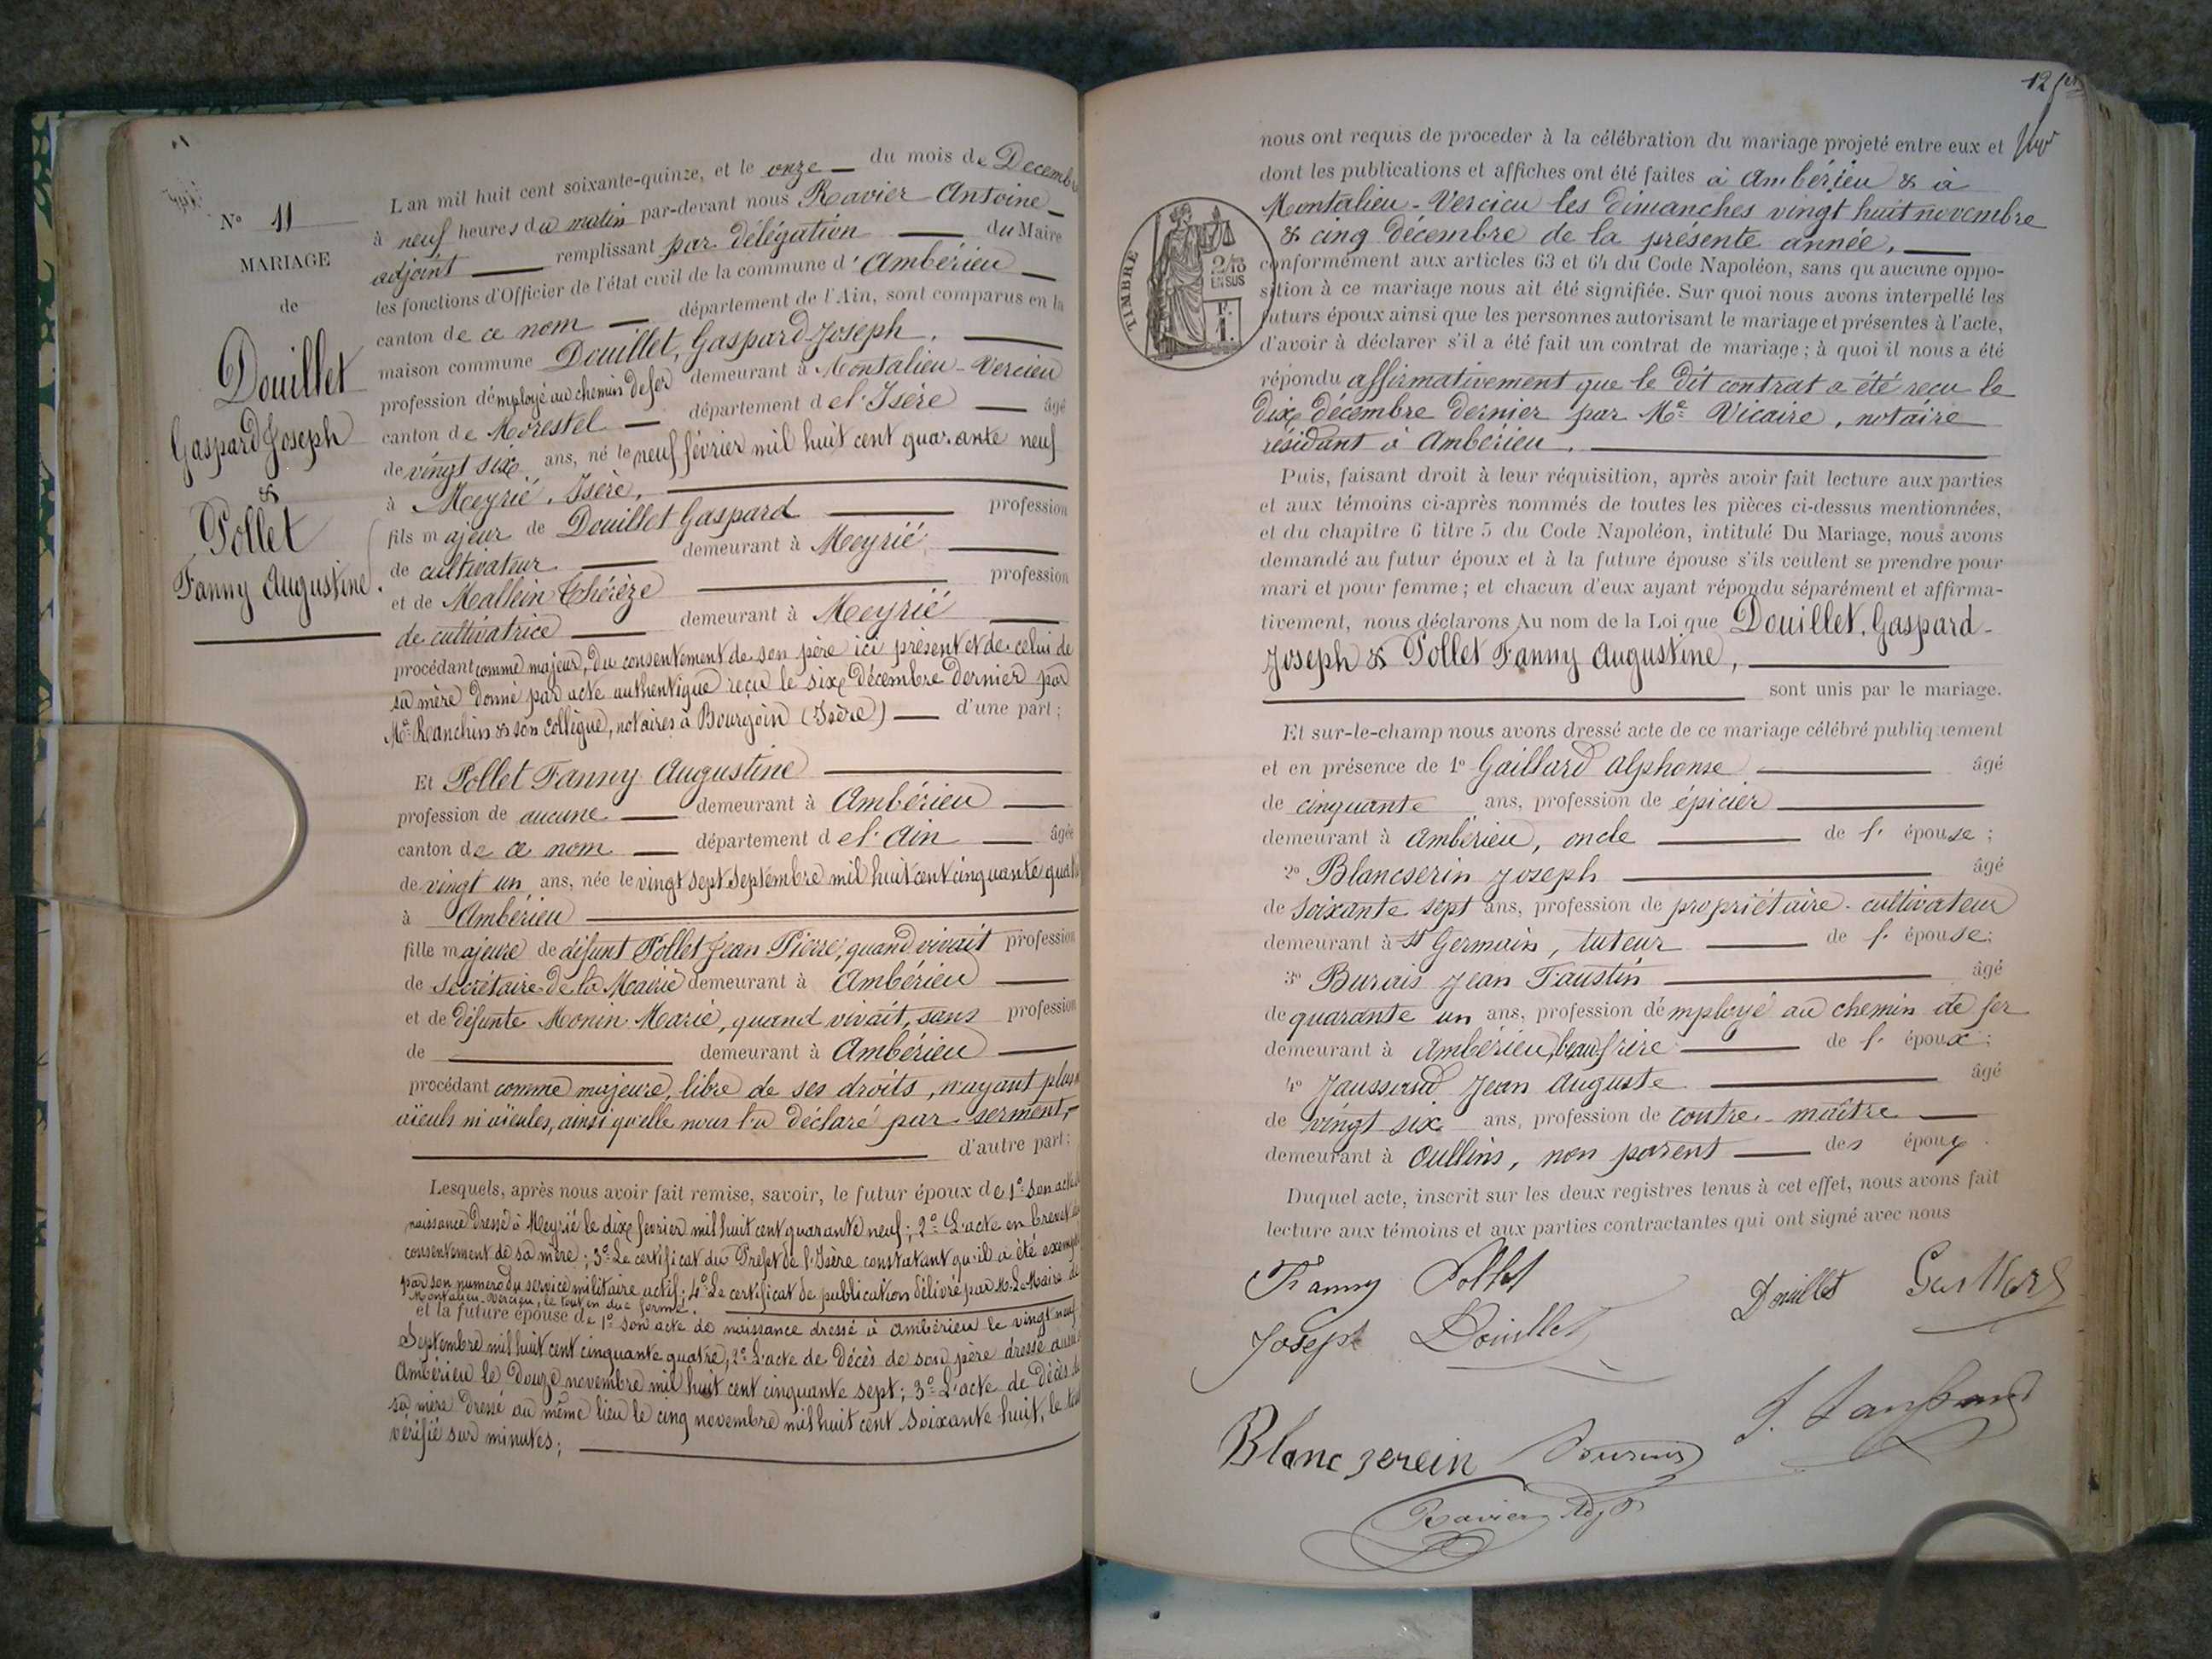 N° 11
MARIAGE
de
Douillet
Gaspard Joseph
&
Pollet
Fanny Augustine.
L'an mil huit cent soixante-quinze, et le onze du mois de Décembre
à neuf heures du matin par-devant nous Ravier Antoine
adjoint remplissant par délégation du Maire
les fonctions d'Officier de l'état civil de la commune d'Ambérieu
canton de ce nom département de l'Ain, sont comparus en la
maison commune Douillet, Gaspard Joseph,
profession d'employé au chemin de fer demeurant à Montalieu-Vercieu
canton de Morestel département de l'Isère âgé
de vingt six ans, né le neuf février mil huit cent quarante neuf
à Meyrié, Isère,
fils majeur de Douillet Gaspard profession
de cultivateur demeurant à Meyrié
et de Mallein Thérèze profession
de cultivatrice demeurant à Meyrié
procédant comme majeur, du consentement de son père ici présent et de celui de
sa mère donné par acte authentique reçu le six décembre dernier par
Me Ranchin & son collègue, notaires à Bourgoin (Isère) d'une part;
Et Pollet Fanny Augustine
profession de aucune demeurant à Ambérieu
canton de ce nom département de l'Ain âgée
de vingt un ans, née le vingt sept septembre mil huit cent cinquante quatre
à Ambérieu
fille majeure de défunt Pollet Jean Pierre, quand vivait profession
de secrétaire de la Mairie demeurant à Ambérieu
et de défunte Monin Marie, quand vivait, sans profession
de demeurant à Ambérieu
procédant comme majeure, libre de ses droits, n'ayant plus
aïeuls ni aïeules, ainsi qu'elle nous l'a déclaré par serment,
d'autre part:
Lesquels, après nous avoir fait remise, savoir, le futur époux de 1° Son acte de
naissance dressé à Meyrié le dix février mil huit cent quarante neuf; 2° L'acte en brevet du
consentement de sa mère; 3° Le certificat du Préfet de l'Isère constatant qu'il a été exempté
par son numéro du service militaire actif; 4° Le certificat de publication délivré par M. Le Maire de
Montalieu-Vercieu, le tout en due forme.
et la future épouse de 1° Son acte de naissance dressé à Ambérieu le vingt neuf
Septembre mil huit cent cinquante quatre, 2° L'acte de décès de son père dressé aussi
Ambérieu le douze novembre mil huit cent cinquante sept; 3° L'acte de Décès de
sa mère dressé au même lieu le cinq novembre mil huit cent soixante huit, le tout
vérifié sur minutes;
12
nous ont requis de proceder à la célébration du mariage projeté entre eux et
dont les publications et affiches ont été faites à Ambérieu & à
Montalieu-Vercieu les dimanches vingt huit novembre
& cinq décembre de la présente année,
conformément aux articles 63 et 64 du Code Napoléon, sans qu'aucune oppo-
sition à ce mariage nous ait été signifiée. Sur quoi nous avons interpellé les
futurs époux ainsi que les personnes autorisant le mariage et présentes à l'acte,
d'avoir à déclarer s'il a été fait un contrat de mariage; à quoi il nous a été
répondu affirmativement que le dit contrat a été reçu le
dix décembre dernier par Me Vicaire, notaire
résidant à Ambérieu.
TIMBRE
2/10
EN SUS
F.
1.
Puis, faisant droit à leur réquisition, après avoir fait lecture aux parties
et aux témoins ci-après nommés de toutes les pièces ci-dessus mentionnées,
et du chapitre 6 titre 5 du Code Napoléon, intitulé Du Mariage, nous avons
demandé au futur époux et à la future épouse s'ils veulent se prendre pour
mari et pour femme; et chacun d'eux ayant répondu séparément et affirma-
tivement, nous déclarons Au nom de la Loi que Douillet, Gaspard-
Joseph & Pollet Fanny Augustine,
sont unis par le mariage.
Et sur-le-champ nous avons dressé acte de ce mariage célébré publiquement
et en présence de 1° Gaillard Alphonse âgé
de cinquante ans, profession de épicier
demeurant à Ambérieu, oncle de l' épouse;
2° Blancserin Joseph âgé
de soixante sept ans, profession de propriétaire-cultivateur
demeurant à St Germain, tuteur de l' épouse;
3° Burais Jean Faustin âgé
de quarante un ans, profession d'employé au chemin de fer
demeurant à Ambérieu, beau-frère de l' époux;
4° Jaussand Jean Auguste âgé
de vingt six ans, profession de contre-maître
demeurant à Oullins, non parent des époux.
Duquel acte, inscrit sur les deux registres tenus à cet effet, nous avons fait
lecture aux témoins et aux parties contractantes qui ont signé avec nous
Fanny Pollet Douillet
Joseph Douillet
J. Jaussand
Blanc zerein
Ravier Adjt